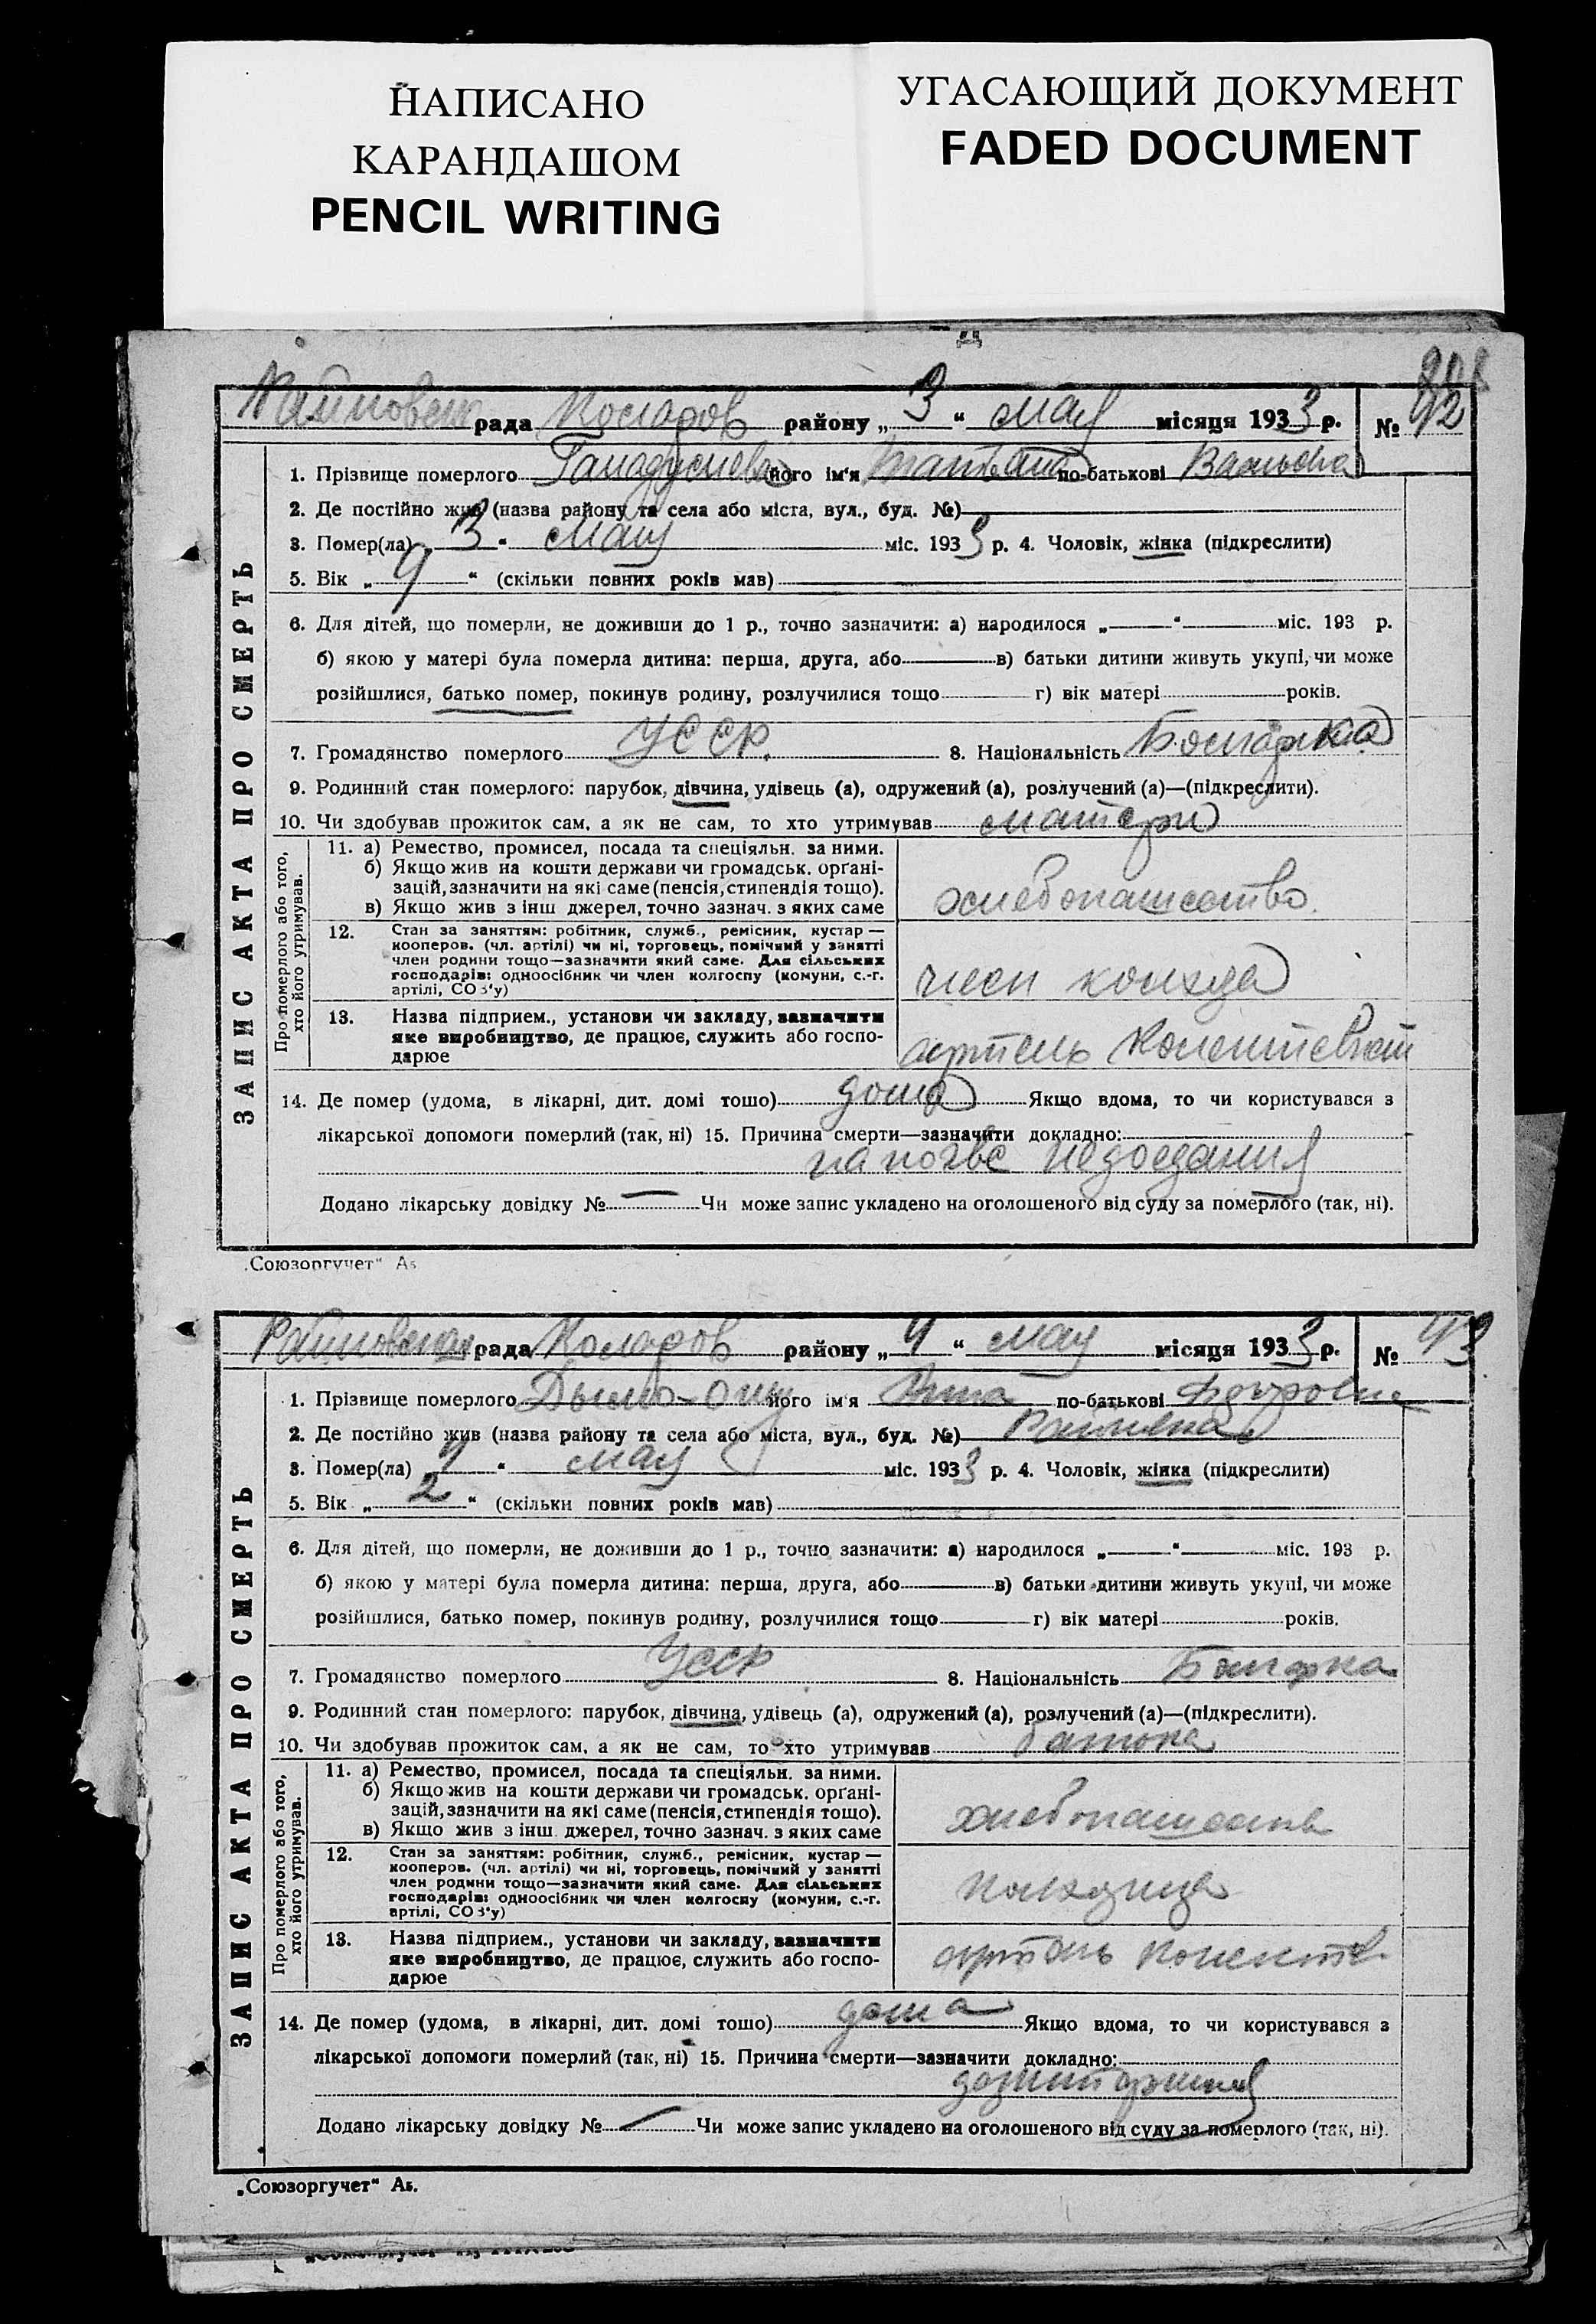 НАПИСАНО
КАРАНДАШОМ
PENCIL WRITING
УГАСАЮЩИЙ ДОКУМЕНТ
FADED DOCUMENT
рада Коларов району „3“ мая місяця 1933 р. № 42
1. Прізвище померлого його ім'я Татьяна по-батькові
2. Де постійно жив (назва району та села або міста, вул., буд. №)
3. Помер(ла) „3“ мая міс. 1933 р. 4. Чоловік, жінка (підкреслити)
5. Вік „9“ (скільки повних років мав)
6. Для дітей, що померли, не доживши до 1 р., точно зазначити: а) народилося „ “ міс. 193 р.
б) якою у матері була померла дитина: перша, друга, або в) батьки дитини живуть укупі, чи може
розійшлися, батько помер, покинув родину, розлучилися тощо г) вік матері років.
7. Громадянство померлого УССР. 8. Національність Болгарка
9. Родинний стан померлого: парубок, дівчина, удівець (а), одружений (а), розлучений (а)—(підкреслити).
10. Чи здобував прожиток сам, а як не сам, то хто утримував матери
ЗАПИС АКТА ПРО СМЕРТЬ
Про померлого або того, хто його утримував.
11. а) Ремество, промисел, посада та спеціяльн. за ними.
б) Якщо жив на кошти держави чи громадськ. орґані-
зацій, зазначити на які саме (пенсія, стипендія тощо).
в) Якщо жив з інш джерел, точно зазнач. з яких саме
хлебопашество.
12. Стан за заняттям: робітник, служб., ремісник, кустар —
кооперов. (чл. артілі) чи ні, торговець, помічний у занятті
член родини тощо—зазначити який саме. Для сільських
господарів: одноосібник чи член колгоспу (комуни, с.-г.
артілі, СОЗ'у)
член колхоза
13. Назва підприєм., установи чи закладу, зазначити
яке виробництво, де працює, служить або госпо-
дарює
артель
14. Де помер (удома, в лікарні, дит. домі тошо) дома Якщо вдома, то чи користувався з
лікарської допомоги померлий (так, ні) 15. Причина смерти—зазначити докладно:
на почве недоедания
Додано лікарську довідку № — Чи може запис укладено на оголошеного від суду за померлого (так, ні).
„Союзоргучет“ А5
рада Коларов району „4“ мая місяця 1933 р. № 43
1. Прізвище померлого його ім'я Анна по-батькові
2. Де постійно жив (назва району та села або міста, вул., буд. №)
3. Помер(ла) „4“ мая міс. 1933 р. 4. Чоловік, жінка (підкреслити)
5. Вік „2“ (скільки повних років мав)
6. Для дітей, що померли, не доживши до 1 р., точно зазначити: а) народилося „ “ міс. 193 р.
б) якою у матері була померла дитина: перша, друга, або в) батьки дитини живуть укупі, чи може
розійшлися, батько помер, покинув родину, розлучилися тощо г) вік матері років.
7. Громадянство померлого УССР 8. Національність Болгарка
9. Родинний стан померлого: парубок, дівчина, удівець (а), одружений (а), розлучений (а)—(підкреслити).
10. Чи здобував прожиток сам, а як не сам, то хто утримував батька
ЗАПИС АКТА ПРО СМЕРТЬ
Про померлого або того, хто його утримував.
11. а) Ремество, промисел, посада та спеціяльн. за ними.
б) Якщо жив на кошти держави чи громадськ. орґані-
зацій, зазначити на які саме (пенсія, стипендія тощо).
в) Якщо жив з інш. джерел, точно зазнач. з яких саме
12. Стан за заняттям: робітник, служб., ремісник, кустар —
кооперов. (чл. артілі) чи ні, торговець, помічний у занятті
член родини тощо—зазначити який саме. Для сільських
господарів: одноосібник чи член колгоспу (комуни, с.-г.
артілі, СОЗ'у)
13. Назва підприєм., установи чи закладу, зазначити
яке виробництво, де працює, служить або госпо-
дарює
артель
14. Де помер (удома, в лікарні, дит. домі тошо) дома Якщо вдома, то чи користувався з
лікарської допомоги померлий (так, ні) 15. Причина смерти—зазначити докладно:
Додано лікарську довідку № — Чи може запис укладено на оголошеного від суду за померлого (так, ні).
„Союзоргучет“ А5.